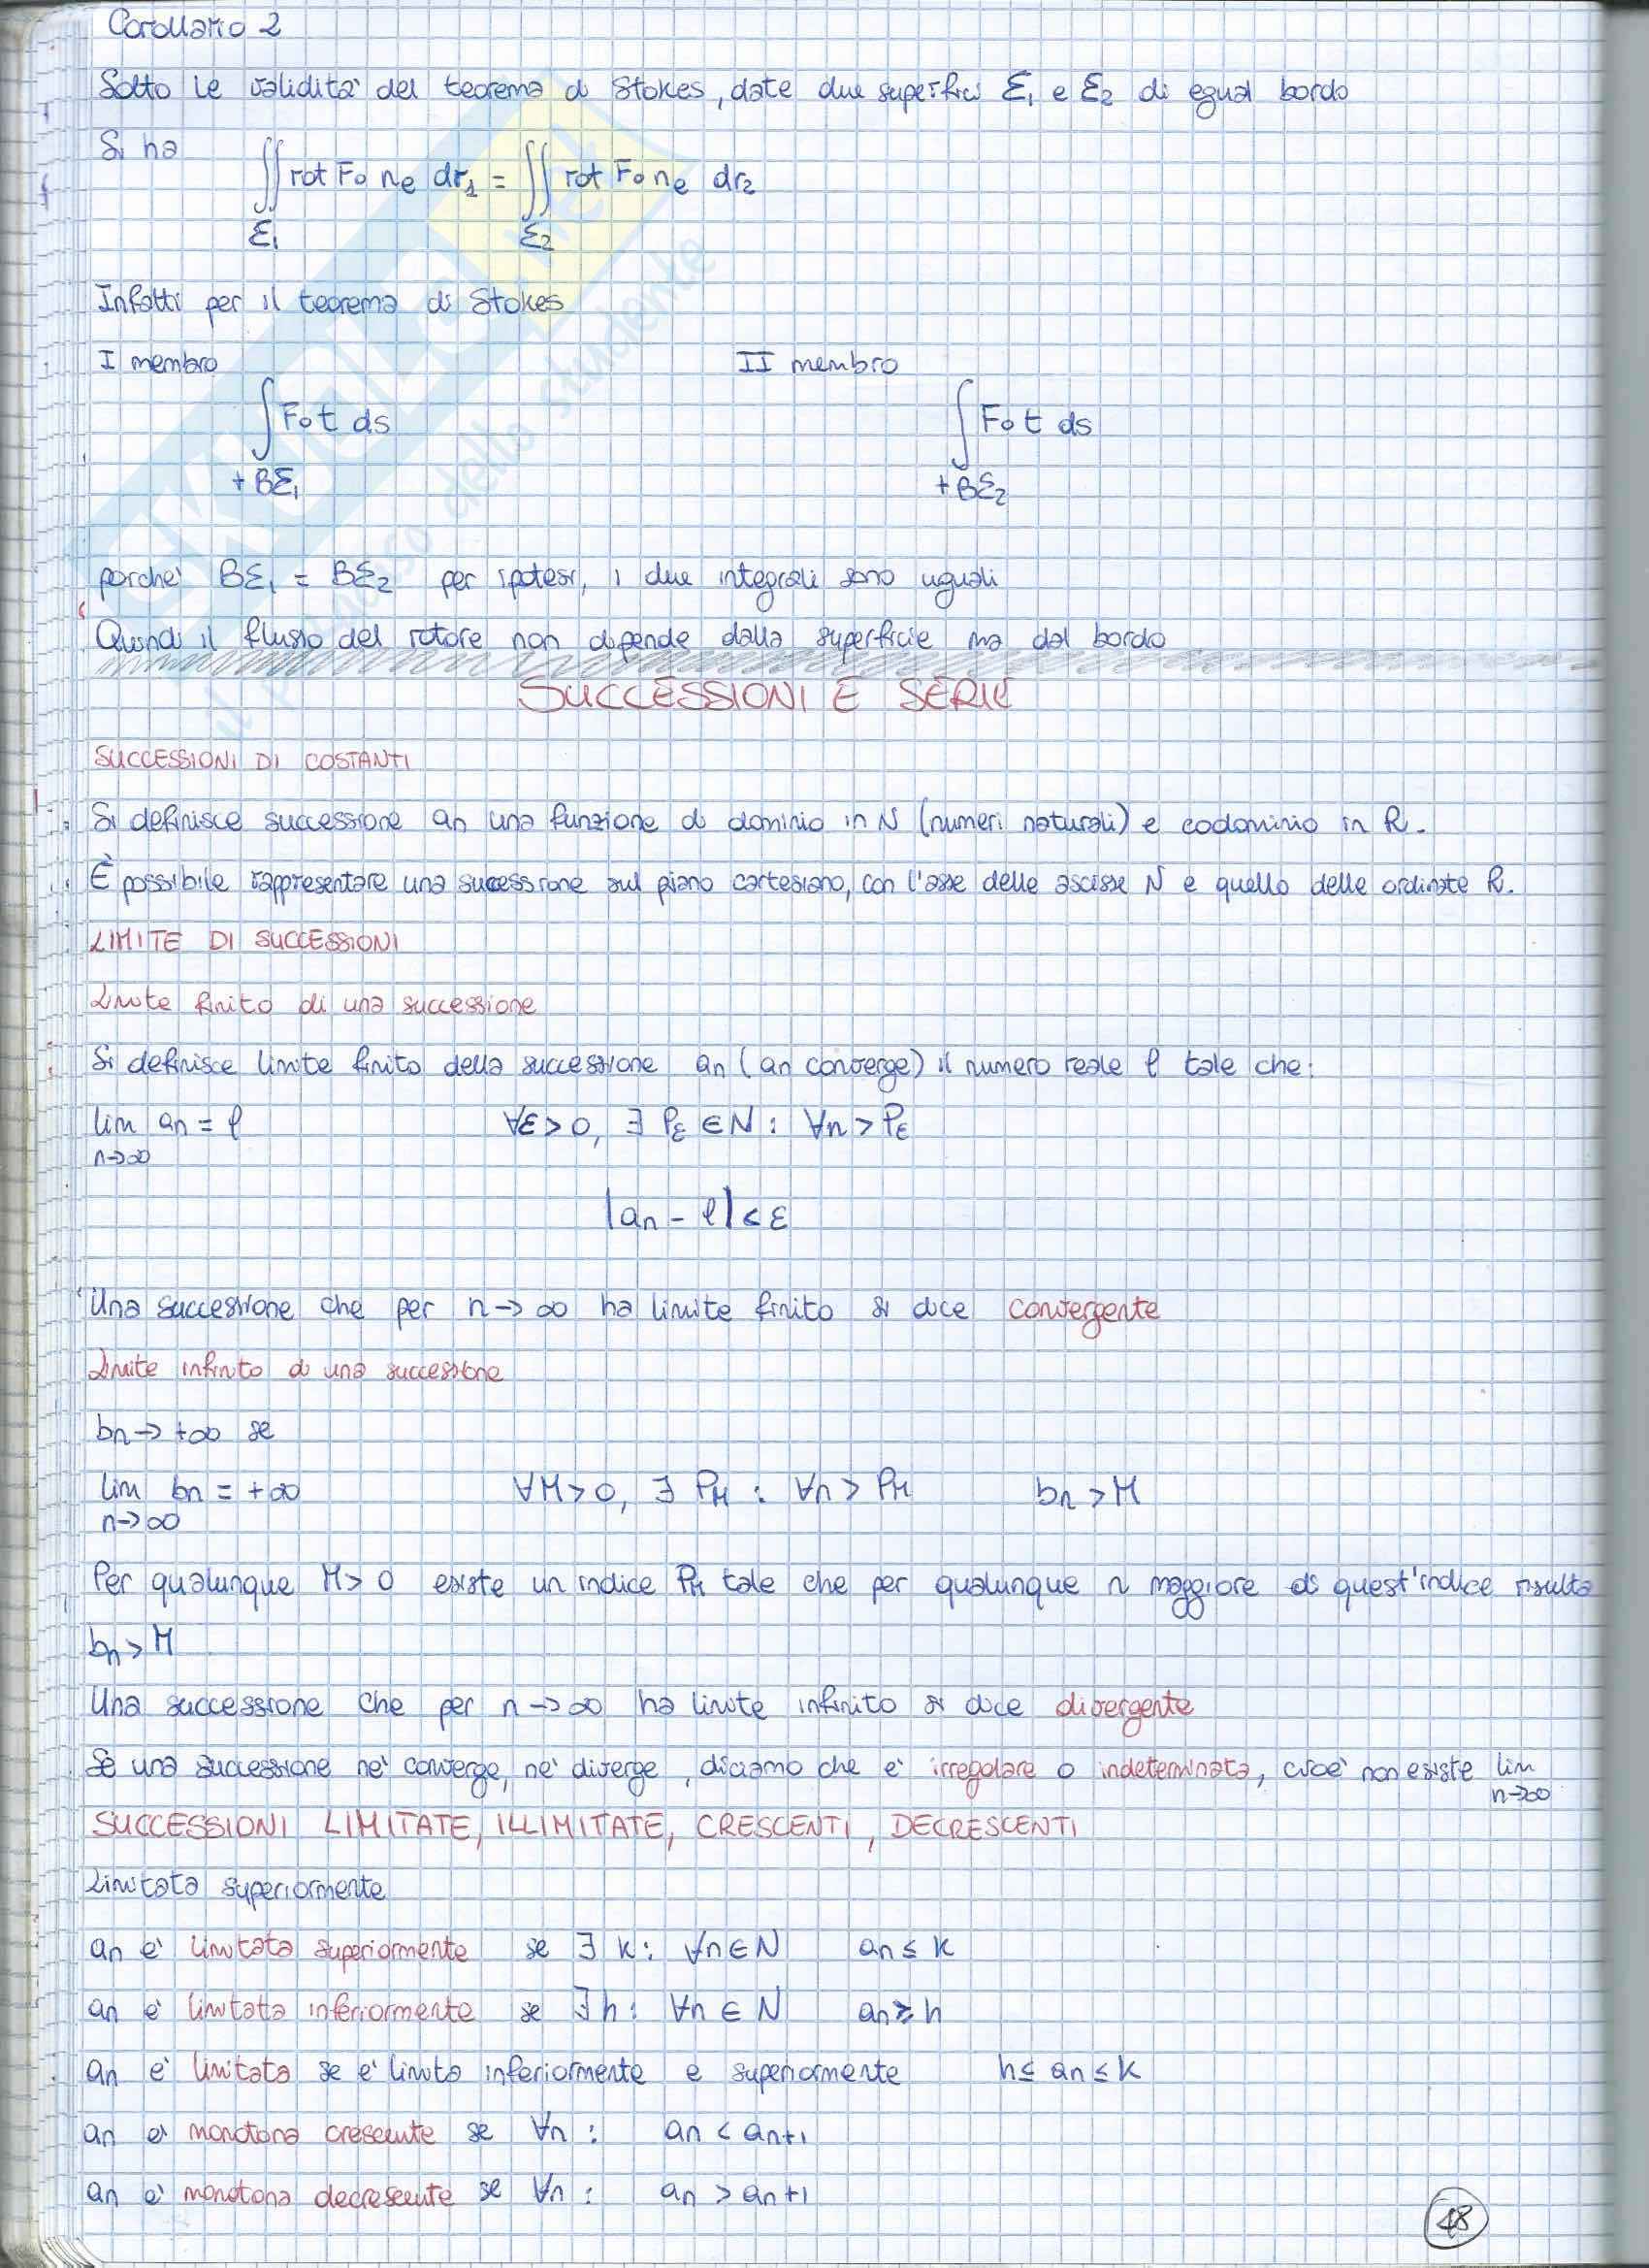 Corollario 2
Sotto le validità del teorema di Stokes, date due superfici Σ₁ e Σ₂ di egual bordo
Si ha
∬ rot F∘nₑ dσ₁ = ∬ rot F∘nₑ dσ₂
Σ₁ Σ₂
Infatti per il teorema di Stokes
I membro II membro
∫ F∘t ds ∫ F∘t ds
+BΣ₁ +BΣ₂
perchè BΣ₁ = BΣ₂ per ipotesi, i due integrali sono uguali
Quindi il flusso del rotore non dipende dalla superficie ma dal bordo
SUCCESSIONI E SERIE
SUCCESSIONI DI COSTANTI
Si definisce successione an una funzione di dominio in N (numeri naturali) e codominio in R.
È possibile rappresentare una successione sul piano cartesiano, con l'asse delle ascisse N e quello delle ordinate R.
LIMITE DI SUCCESSIONI
Limite finito di una successione
Si definisce limite finito della successione an (an converge) il numero reale ℓ tale che:
lim an = ℓ ∀ε > 0, ∃ Pε ∈ N : ∀n > Pε
n→∞
|an - ℓ| < ε
Una successione che per n→∞ ha limite finito si dice convergente
Limite infinito di una successione
bn → +∞ se
lim bn = +∞ ∀M > 0, ∃ PM : ∀n > PM bn > M
n→∞
Per qualunque M > 0 esiste un indice PM tale che per qualunque n maggiore di quest'indice risulta
bn > M
Una successione che per n→∞ ha limite infinito si dice divergente
Se una successione nè converge, nè diverge, diciamo che è irregolare o indeterminata, cioè non esiste lim
n→∞
SUCCESSIONI LIMITATE, ILLIMITATE, CRESCENTI, DECRESCENTI
Limitata superiormente
an è limitata superiormente se ∃ k : ∀n ∈ N an ≤ k
an è limitata inferiormente se ∃ h : ∀n ∈ N an ≥ h
an è limitata se è limita inferiormente e superiormente h ≤ an ≤ k
an è monotona crescente se ∀n : an < an+1
an è monotona decrescente se ∀n : an > an+1
48